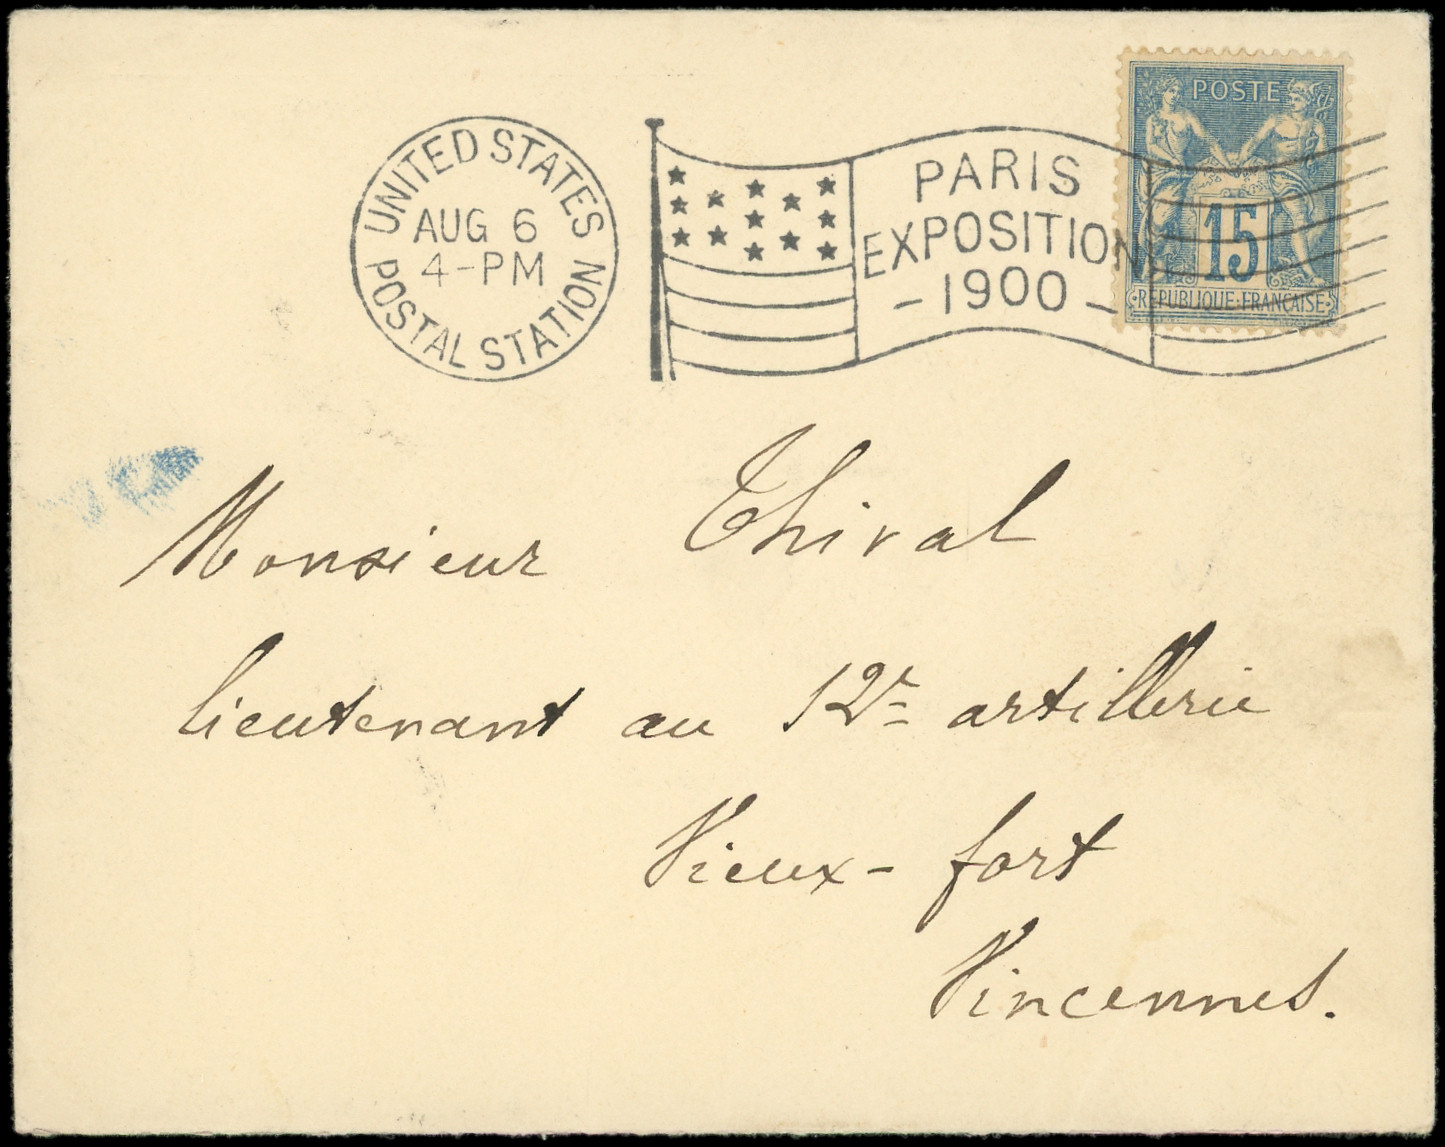 UNITED STATES POSTAL STATION
AUG 6
4-PM
PARIS
EXPOSITION
-1900-
POSTE
15
RÉPUBLIQUE FRANÇAISE
Monsieur Thiral
lieutenant au 12e artillerie
Vieux-fort
Vincennes.